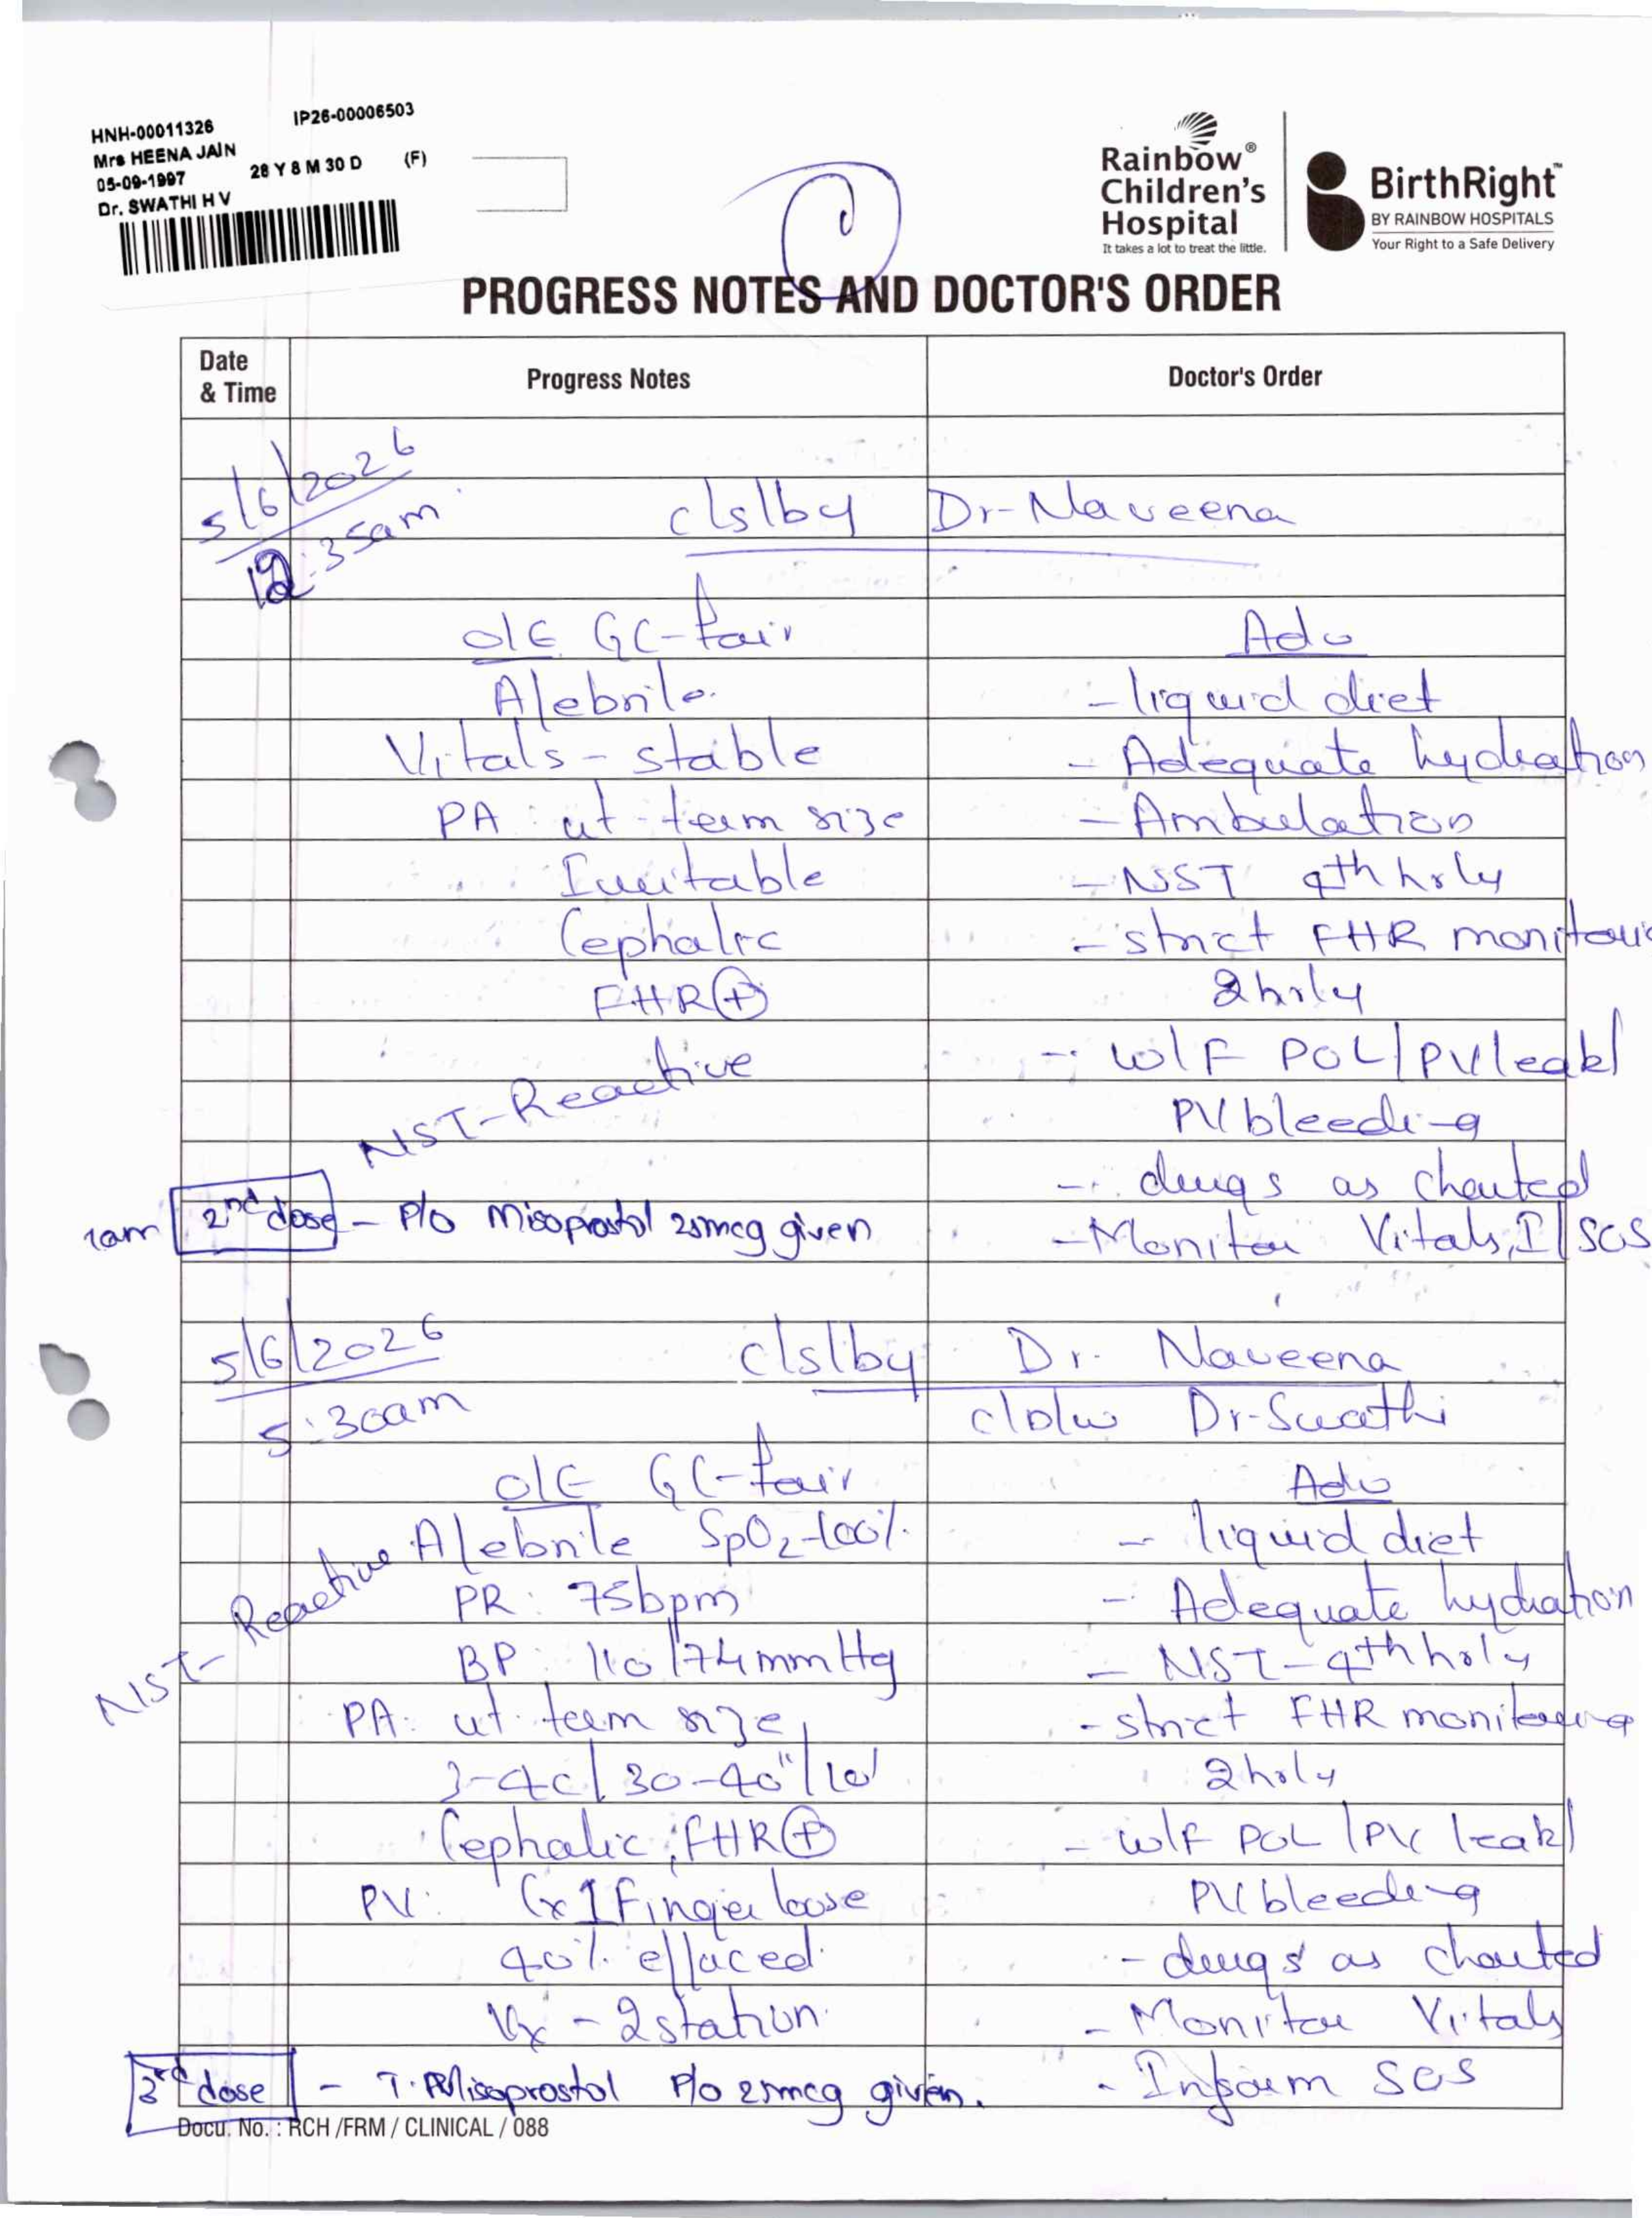 HNH-00011326 IP26-00006503
Mrs HEENA JAIN
05-09-1997 28 Y 8 M 30 D (F)
Dr. SWATHI H V
Rainbow® Children's Hospital
It takes a lot to treat the little.
BirthRight™
BY RAINBOW HOSPITALS
Your Right to a Safe Delivery
PROGRESS NOTES AND DOCTOR'S ORDER
Date & Time Progress Notes Doctor's Order
5/6/2026
12:35am c/s/by Dr-Naveena
O/E GC-fair Adv
Afebrile - liquid diet
Vitals - stable - Adequate hydration
PA: ut-term size - Ambulation
Irritable - NST 4th hrly
Cephalic - strict FHR monitoring
FHR⊕ 2hrly
NST-Reactive - w/F POL/PV leak/
PV bleeding
- drugs as charted
1am 2nd dose - P/o Misoprostol 25mcg given - Monitor Vitals, I/SOS
5/6/2026 c/s/by Dr. Naveena
5:30am c/D/w Dr-Swathi
O/E GC-fair Adv
Afebrile SpO2-100% - liquid diet
NST-Reactive
PR: 75bpm - Adequate hydration
BP: 110/74mmHg - NST-4th hrly
PA: ut-term size, - strict FHR monitoring
3-4c/30-40"/10' 2hrly
Cephalic, FHR⊕ - w/f POL/PV leak/
PV: Cx 1 Finger loose PV bleeding
40% effaced - drugs as charted
Vx -2station - Monitor Vitals
3rd dose - T. Misoprostol P/o 25mcg given. - Inform SOS
Docu. No. : RCH /FRM / CLINICAL / 088